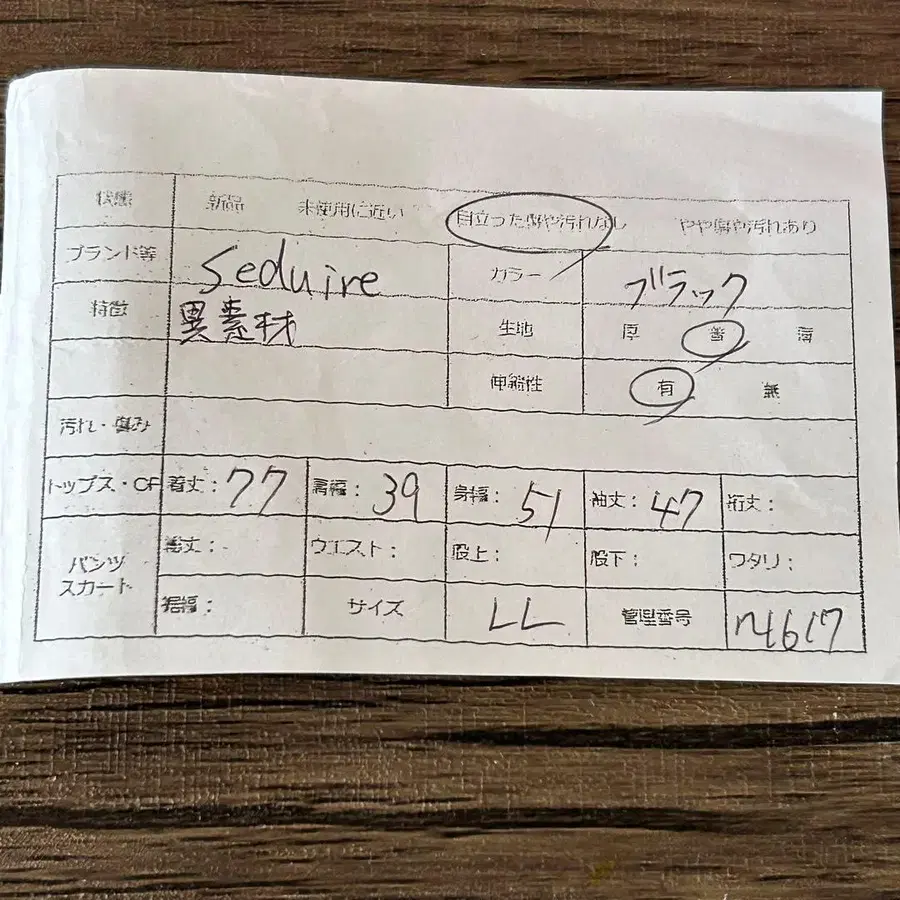 状態 新品 未使用に近い 目立った傷や汚れなし やや傷や汚れあり
ブランド等 Seduire カラー ブラック
特徴 異素材 生地 厚 普 薄
伸縮性 有 無
汚れ・傷み
トップス・OP 着丈：77 肩幅：39 身幅：51 袖丈：47 裄丈：
パンツ
スカート
総丈： ウエスト： 股上： 股下： ワタリ：
裾幅： サイズ LL 管理番号